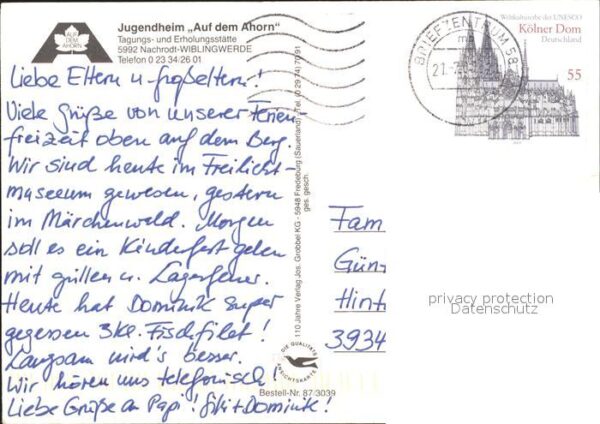 AUF DEM AHORN
Jugendheim „Auf dem Ahorn"
Tagungs- und Erholungsstätte
5992 Nachrodt-WIBLINGWERDE
Telefon 0 23 34-26 01
Liebe Eltern u. Großeltern!
Viele Grüße von unserer Ferien-
freizeit oben auf dem Berg.
Wir sind heute im Freilicht-
museum gewesen, gestern
im Märchenwald. Morgen
soll es ein Kinderfest geben
mit grillen u. Lagerfeuer.
Heute hat Dominik super
gegessen 3 kl. Fischfilet!
Langsam wird's besser.
Wir hören uns telefonisch!
Liebe Grüße an Papi! + Dominik!
110 Jahre Verlag Jos. Grobbel KG - 5948 Fredeburg (Sauerland) - Tel. (0 29 74) 70 91
ges. gesch.
DIE QUALITÄTS ANSICHTSKARTE
Bestell-Nr. 87/3039
BRIEFZENTRUM 58
Weltkulturerbe der UNESCO
Kölner Dom
Deutschland
55
Fam
Gün
Hint
3934
privacy protection
Datenschutz